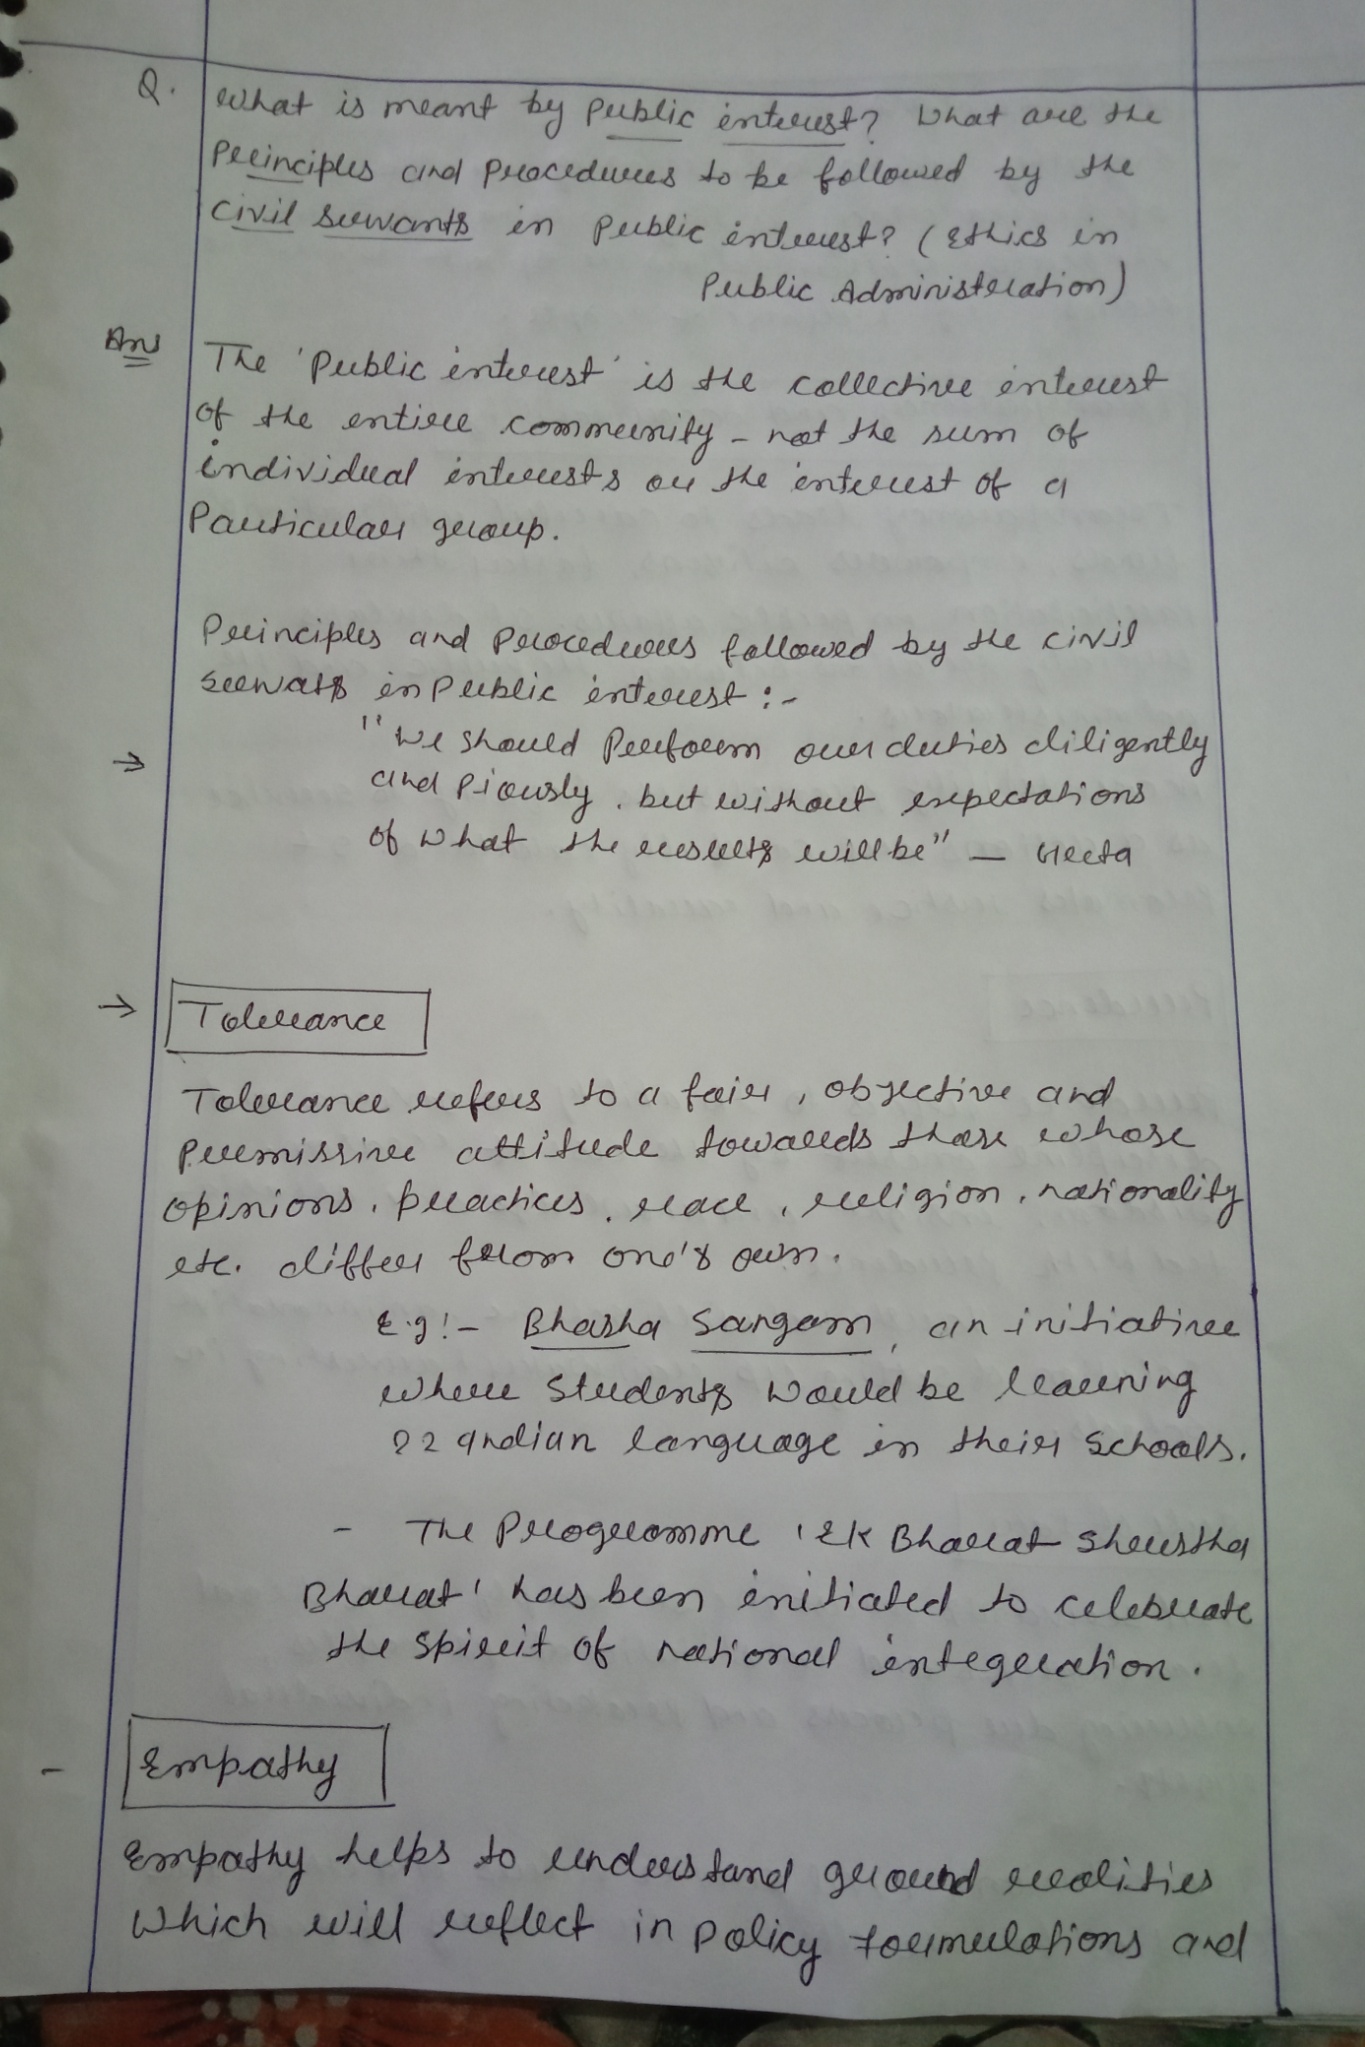 Q. What is meant by Public interest? What are the
Principles and Procedures to be followed by the
Civil Servants in Public interest? (Ethics in
Public Administration)
Ans The 'Public interest' is the collective interest
of the entire community - not the sum of
individual interests or the interest of a
Particular group.
Principles and Procedures followed by the civil
servats in Public interest :-
→ "We should Perform our duties diligently
and Piously, but without expectations
of what the results will be" - Geeta
→ Tolerance
Tolerance refers to a fair, objective and
Permissive attitude towards those whose
opinions, practices, race, religion, nationality
etc. differ from one's own.
E.g!- Bhasha Sangam, an initiative
where Students would be learning
22 Indian language in their Schools.
- The Programme 'Ek Bharat Shrestha
Bharat' has been initiated to celebrate
the Spirit of national integration.
- Empathy
Empathy helps to understand ground realities
Which will reflect in Policy formulations and